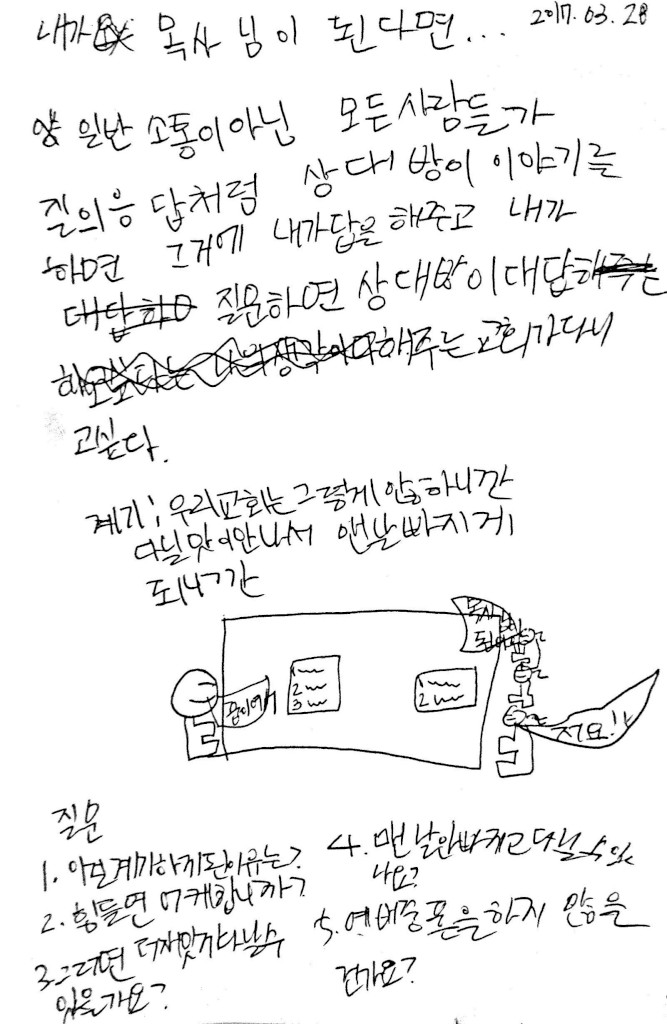 내가 목사님이 된다면... 2017.03.28
양 일반 소통이아닌 모든사람들가
질의응답처럼 상대방이 이야기를
하면 그거에 내가답을 해주고 내가
대답하 질문하면 상대방이대답해주는
해주는 교회가다니
고싶다.
계기; 우리교회는그렇게안하니깐
다닐맛이안나서 맨날빠지게
되니깐
목사님이
1
2
3
1
2
저요!
질문
1. 이걸계기하게된이유는?
2. 힘들면 어케합니까?
3. 그러면 더재밌게다닐수
있을가요?
4. 맨날안빠지고다닐수있
나요?
5. 예배중폰을하지 않을
건가요?